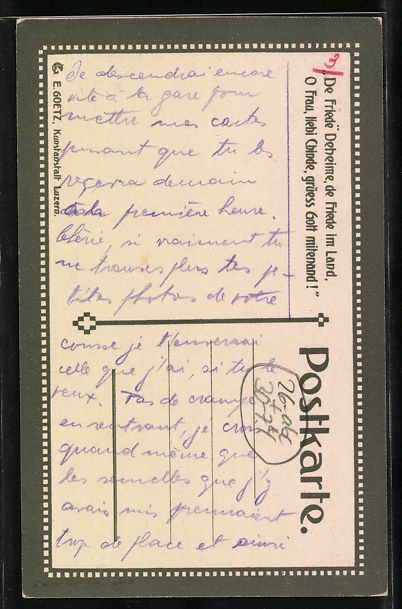 Je descendrai encore
vite à la gare pour
mettre mes cartes
pensant que tu les
recevra demain
à la première heure.
Chérie, si vraiment tu
ne trouves plus tes pe-
tites photos de votre
course je t'enverrai
celle que j'ai, si tu le
veux. Pas de crampe
en rentrant, je crois
quand même que
les semelles que j'y
avais mis prenaient
trop de place et ainsi
3)
„De Friede Deheime, de Friede im Land,
O Frau, liebi Chinde, grüess Gott mitenand!"
Postkarte.
E. GOETZ, Kunstanstalt Luzern.